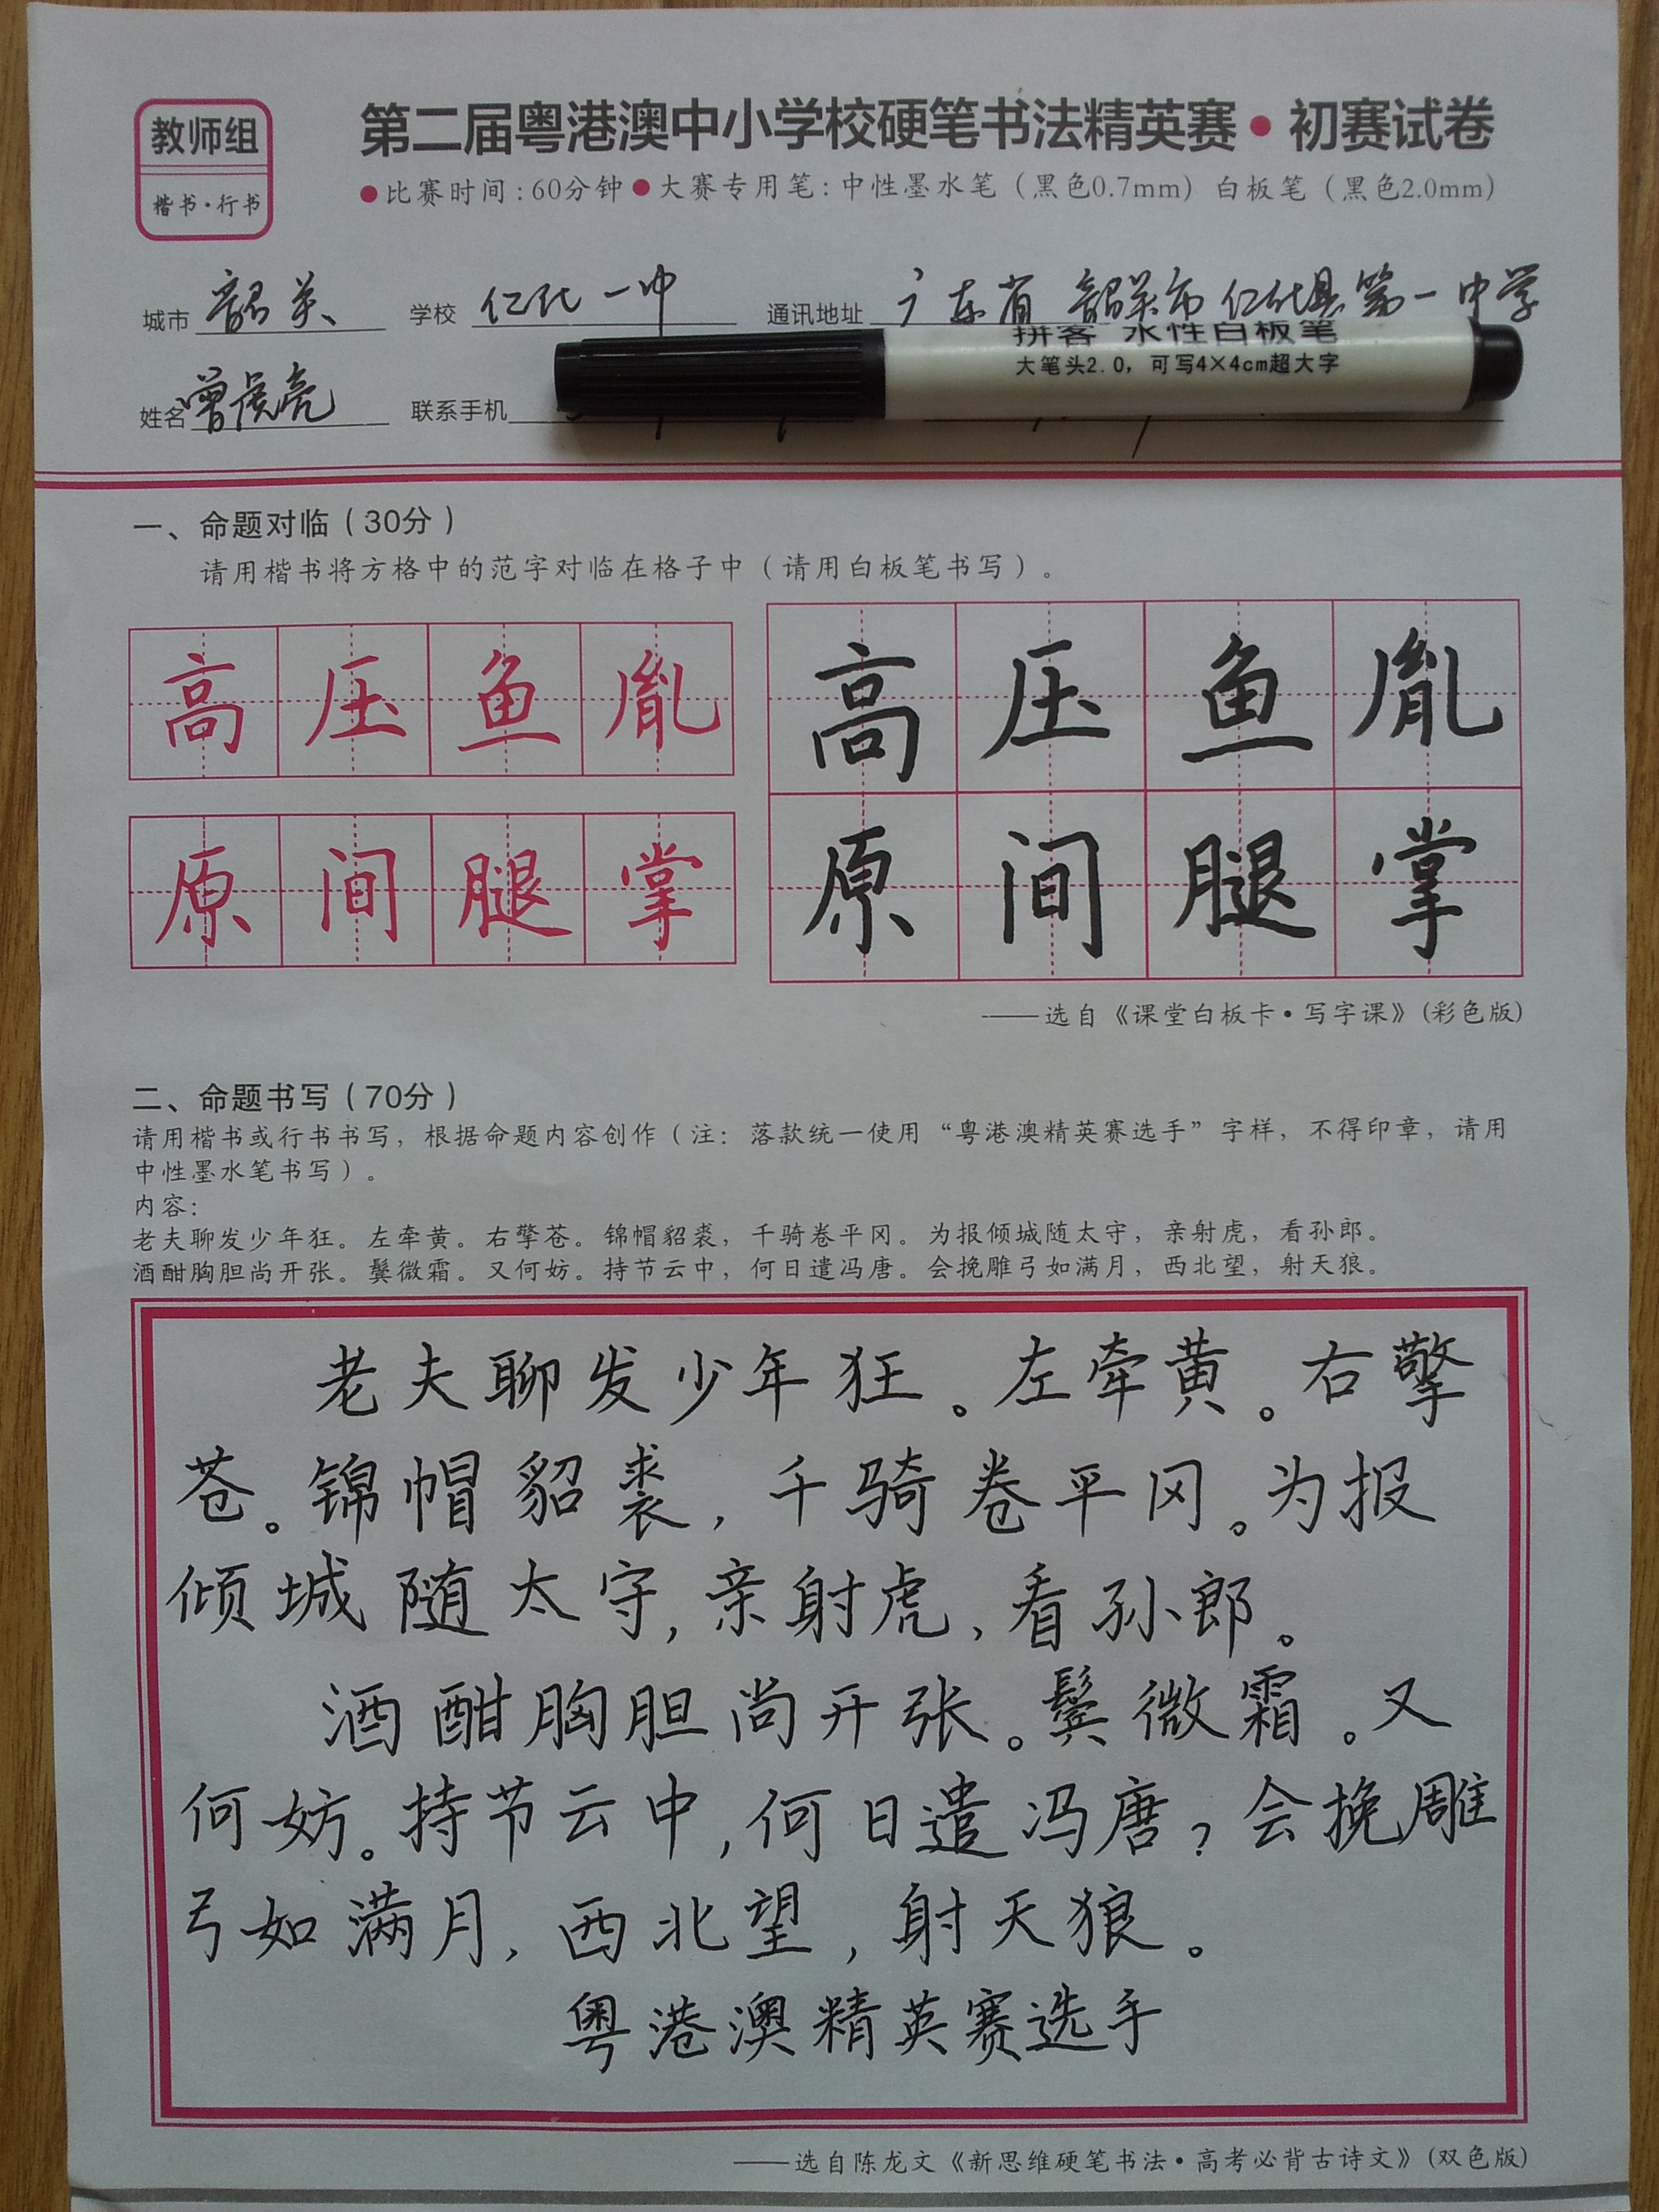 教师组
楷书·行书
第二届粤港澳中小学校硬笔书法精英赛•初赛试卷
●比赛时间：60分钟●大赛专用笔：中性墨水笔（黑色0.7mm）白板笔（黑色2.0mm）
城市 韶关 学校 仁化一中 通讯地址 广东省韶关市仁化县第一中学
拼客 水性白板笔
大笔头2.0，可写4×4cm超大字
姓名 曾虞亮 联系手机
一、命题对临（30分）
请用楷书将方格中的范字对临在格子中（请用白板笔书写）。
高压鱼胤
原间腿掌
高压鱼胤
原间腿掌
——选自《课堂白板卡•写字课》(彩色版)
二、命题书写（70分）
请用楷书或行书书写，根据命题内容创作（注：落款统一使用“粤港澳精英赛选手”字样，不得印章，请用
中性墨水笔书写）。
内容：
老夫聊发少年狂。左牵黄。右擎苍。锦帽貂裘，千骑卷平冈。为报倾城随太守，亲射虎，看孙郎。
酒酣胸胆尚开张。鬓微霜。又何妨。持节云中，何日遣冯唐。会挽雕弓如满月，西北望，射天狼。
老夫聊发少年狂。左牵黄。右擎
苍。锦帽貂裘，千骑卷平冈。为报
倾城随太守，亲射虎，看孙郎。
酒酣胸胆尚开张。鬓微霜。又
何妨。持节云中，何日遣冯唐？会挽雕
弓如满月，西北望，射天狼。
粤港澳精英赛选手
——选自陈龙文《新思维硬笔书法•高考必背古诗文》(双色版)